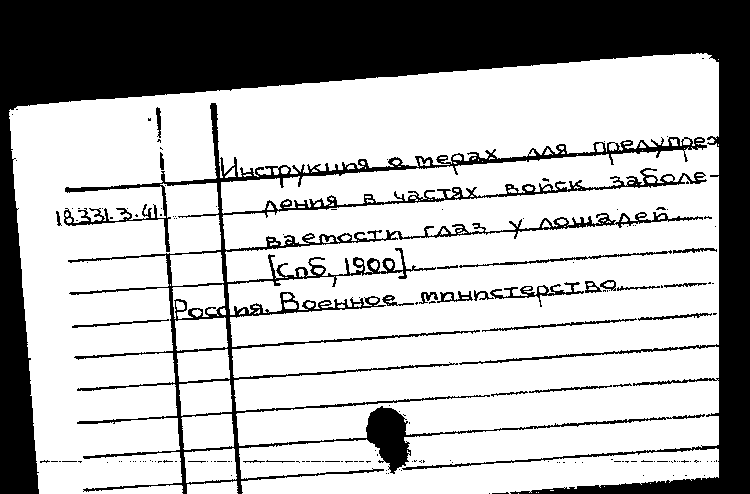 Инструкция о мерах для предупреж
18.331.3.41.
дения в частях войск заболе-
ваемости глаз у лошадей.
[Спб., 1900].
Россия. Военное министерство.